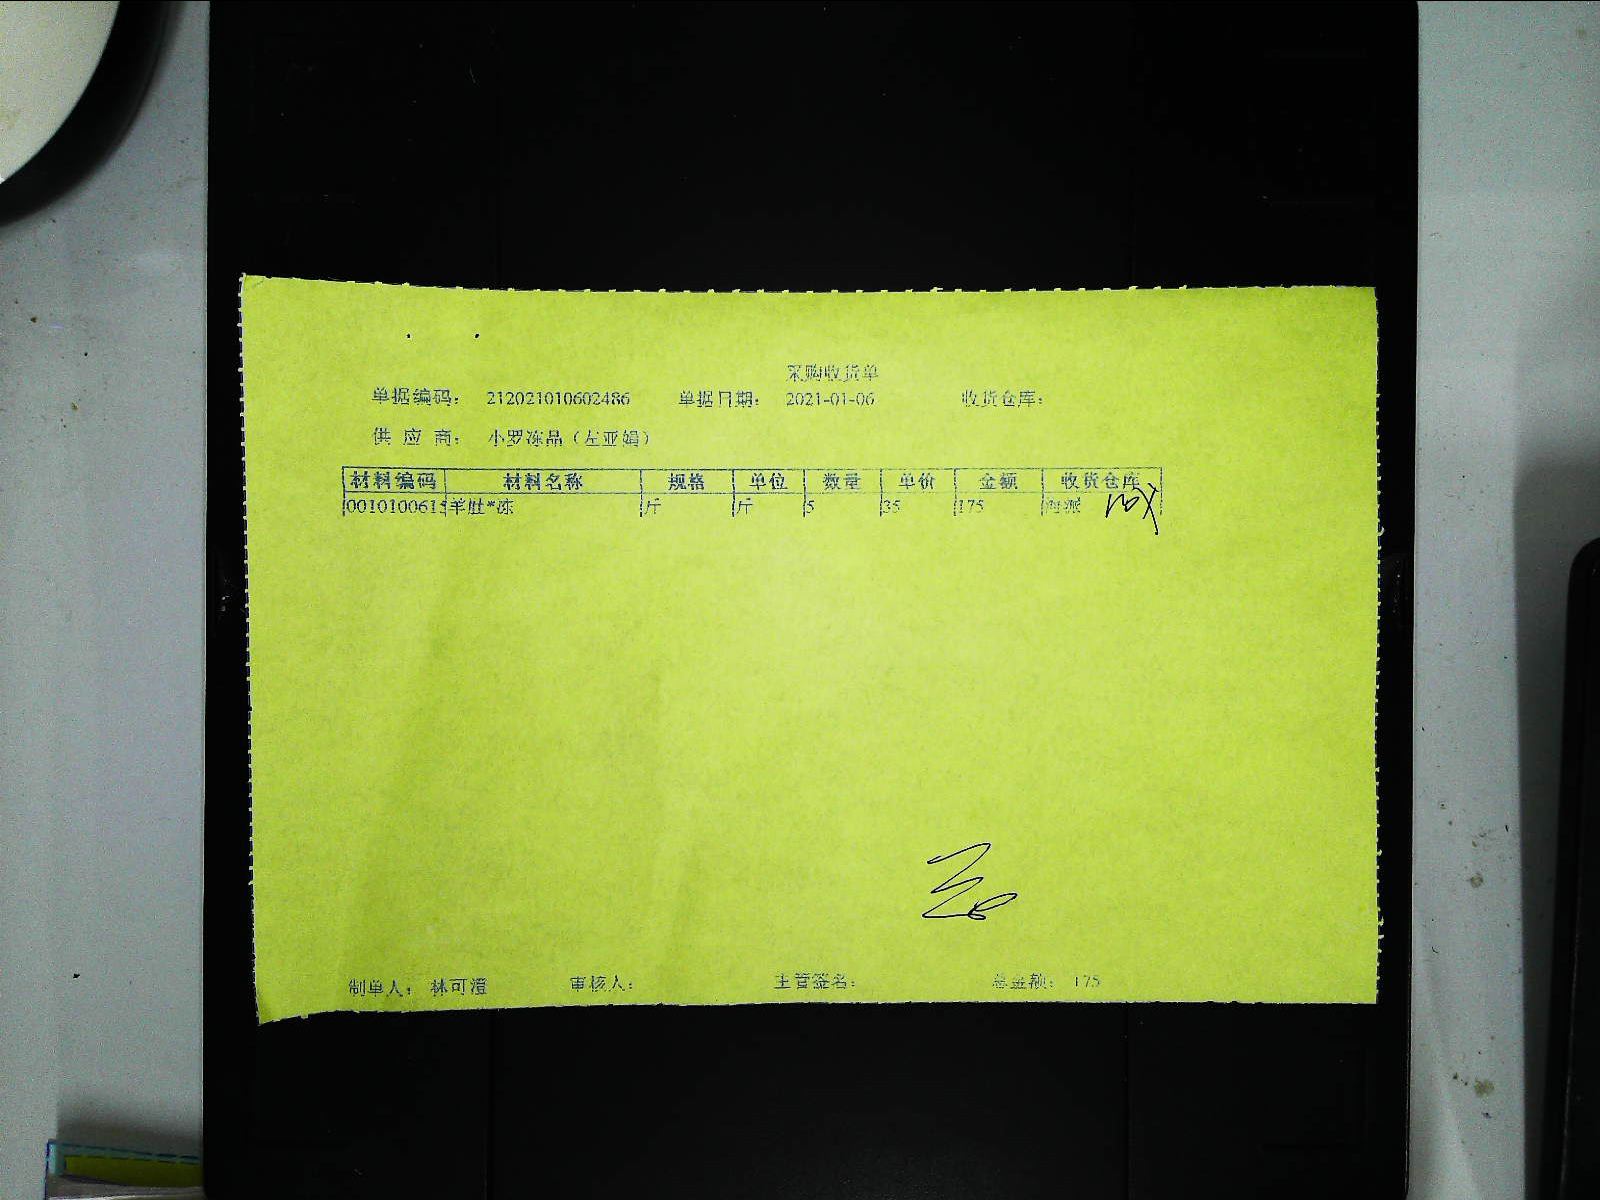 采购收货单
单据编码: 212021010602486 单据日期: 2021-01-06 收货仓库:
供 应 商: 小罗冻品（左亚娟）
材料编码 材料名称 规格 单位 数量 单价 金额 收货仓库
0010100615 羊肚*冻 斤 斤 5 35 175 海派
制单人: 林可澄 审核人: 主管签名: 总金额: 175